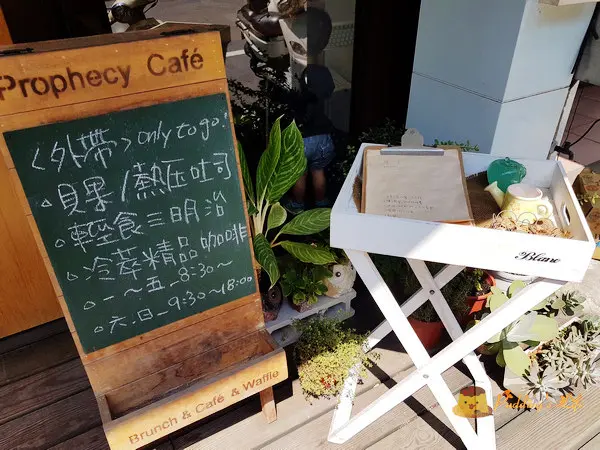 Prophecy Café
<外帶> only to go!
·貝果/熱压吐司
·輕食三明治
·冷萃精品咖啡
·一~五-8:30~
·六.日-9:30~18:00
Brunch & Café & Waffle
Blanc